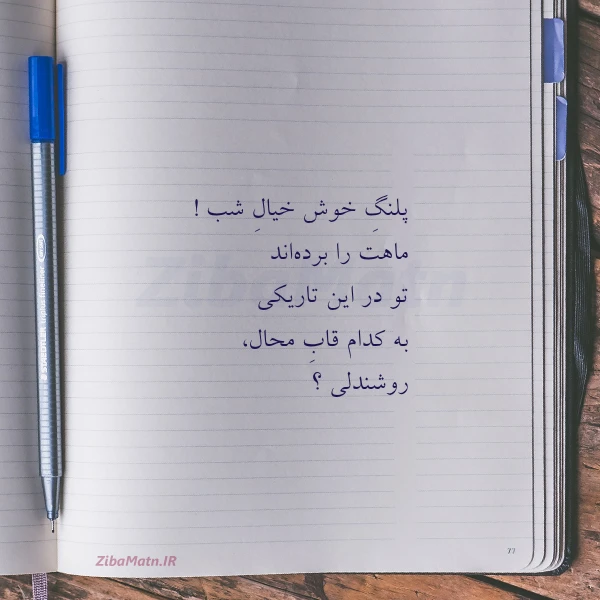 پلنگِ خوش خیالِ شب !
ماهت را برده‌اند
تو در این تاریکی
به کدام قابِ محال،
روشندلی ؟
ZibaMatn
STAEDTLER triplus fineliner
77
ZibaMatn.IR